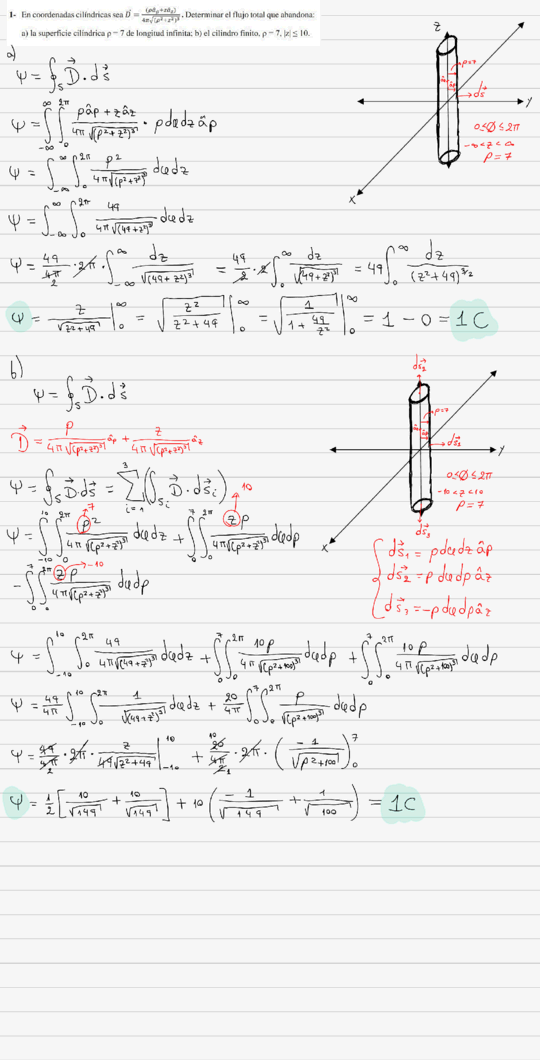 1- En coordenadas cilíndricas sea D⃗ = (ρâρ+zâz) / 4π√(ρ²+z²)³ . Determinar el flujo total que abandona:
a) la superficie cilíndrica ρ = 7 de longitud infinita; b) el cilindro finito, ρ = 7, |z| ≤ 10.
a)
Ψ = ∮s D⃗ · ds⃗
Ψ = ∫_{-∞}^{∞} ∫_0^{2π} (ρâρ + zâz) / 4π√(ρ²+z²)³ · ρdφdz âρ
Ψ = ∫_{-∞}^{∞} ∫_0^{2π} ρ² / 4π√(ρ²+z²)³ dφdz
Ψ = ∫_{-∞}^{∞} ∫_0^{2π} 49 / 4π√(49+z²)³ dφdz
Ψ = 49/4π · 2π · ∫_{-∞}^{∞} dz / √(49+z²)³ = 49/2 · 2 ∫_0^{∞} dz / √(49+z²)³ = 49 ∫_0^{∞} dz / (z²+49)^{3/2}
Ψ = z / √(z²+49) |_0^∞ = √(z² / (z²+49)) |_0^∞ = √(1 / (1 + 49/z²)) |_0^∞ = 1 - 0 = 1C
z
ρ=7
ds⃗
y
x
0≤Ø≤2π
-∞<z<∞
ρ=7
b)
Ψ = ∮s D⃗ · ds⃗
D⃗ = ρ / 4π√(ρ²+z²)³ âρ + z / 4π√(ρ²+z²)³ âz
Ψ = ∮s D⃗·ds⃗ = Σ_{i=1}^{3} (∫_{Si} D⃗ · ds⃗i)
Ψ = ∫_{-10}^{10} ∫_0^{2π} ρ² → 7 / 4π√(ρ²+z²)³ dφdz + ∫_0^7 ∫_0^{2π} z → 10 ρ / 4π√(ρ²+z²)³ dφdρ
- ∫_0^7 ∫_0^{2π} z → -10 ρ / 4π√(ρ²+z²)³ dφdρ
ds⃗2
ρ=7
ds⃗1
y
x
ds⃗3
0≤Ø≤2π
-10<z<10
ρ=7
ds⃗1 = ρdφdz âρ
ds⃗2 = ρdφdρ âz
ds⃗3 = -ρdφdρ âz
Ψ = ∫_{-10}^{10} ∫_0^{2π} 49 / 4π√(49+z²)³ dφdz + ∫_0^7 ∫_0^{2π} 10ρ / 4π√(ρ²+100)³ dφdρ + ∫_0^7 ∫_0^{2π} 10ρ / 4π√(ρ²+100)³ dφdρ
Ψ = 49/4π ∫_{-10}^{10} ∫_0^{2π} 1 / √(49+z²)³ dφdz + 20/4π ∫_0^7 ∫_0^{2π} ρ / √(ρ²+100)³ dφdρ
Ψ = 49/4π · 2π · z / 49√(z²+49) |_{-10}^{10} + 20/4π · 2π · (-1 / √(ρ²+100))_0^7
Ψ = 1/2 [10/√149 + 10/√149] + 10 (-1/√149 + 1/√100) = 1C